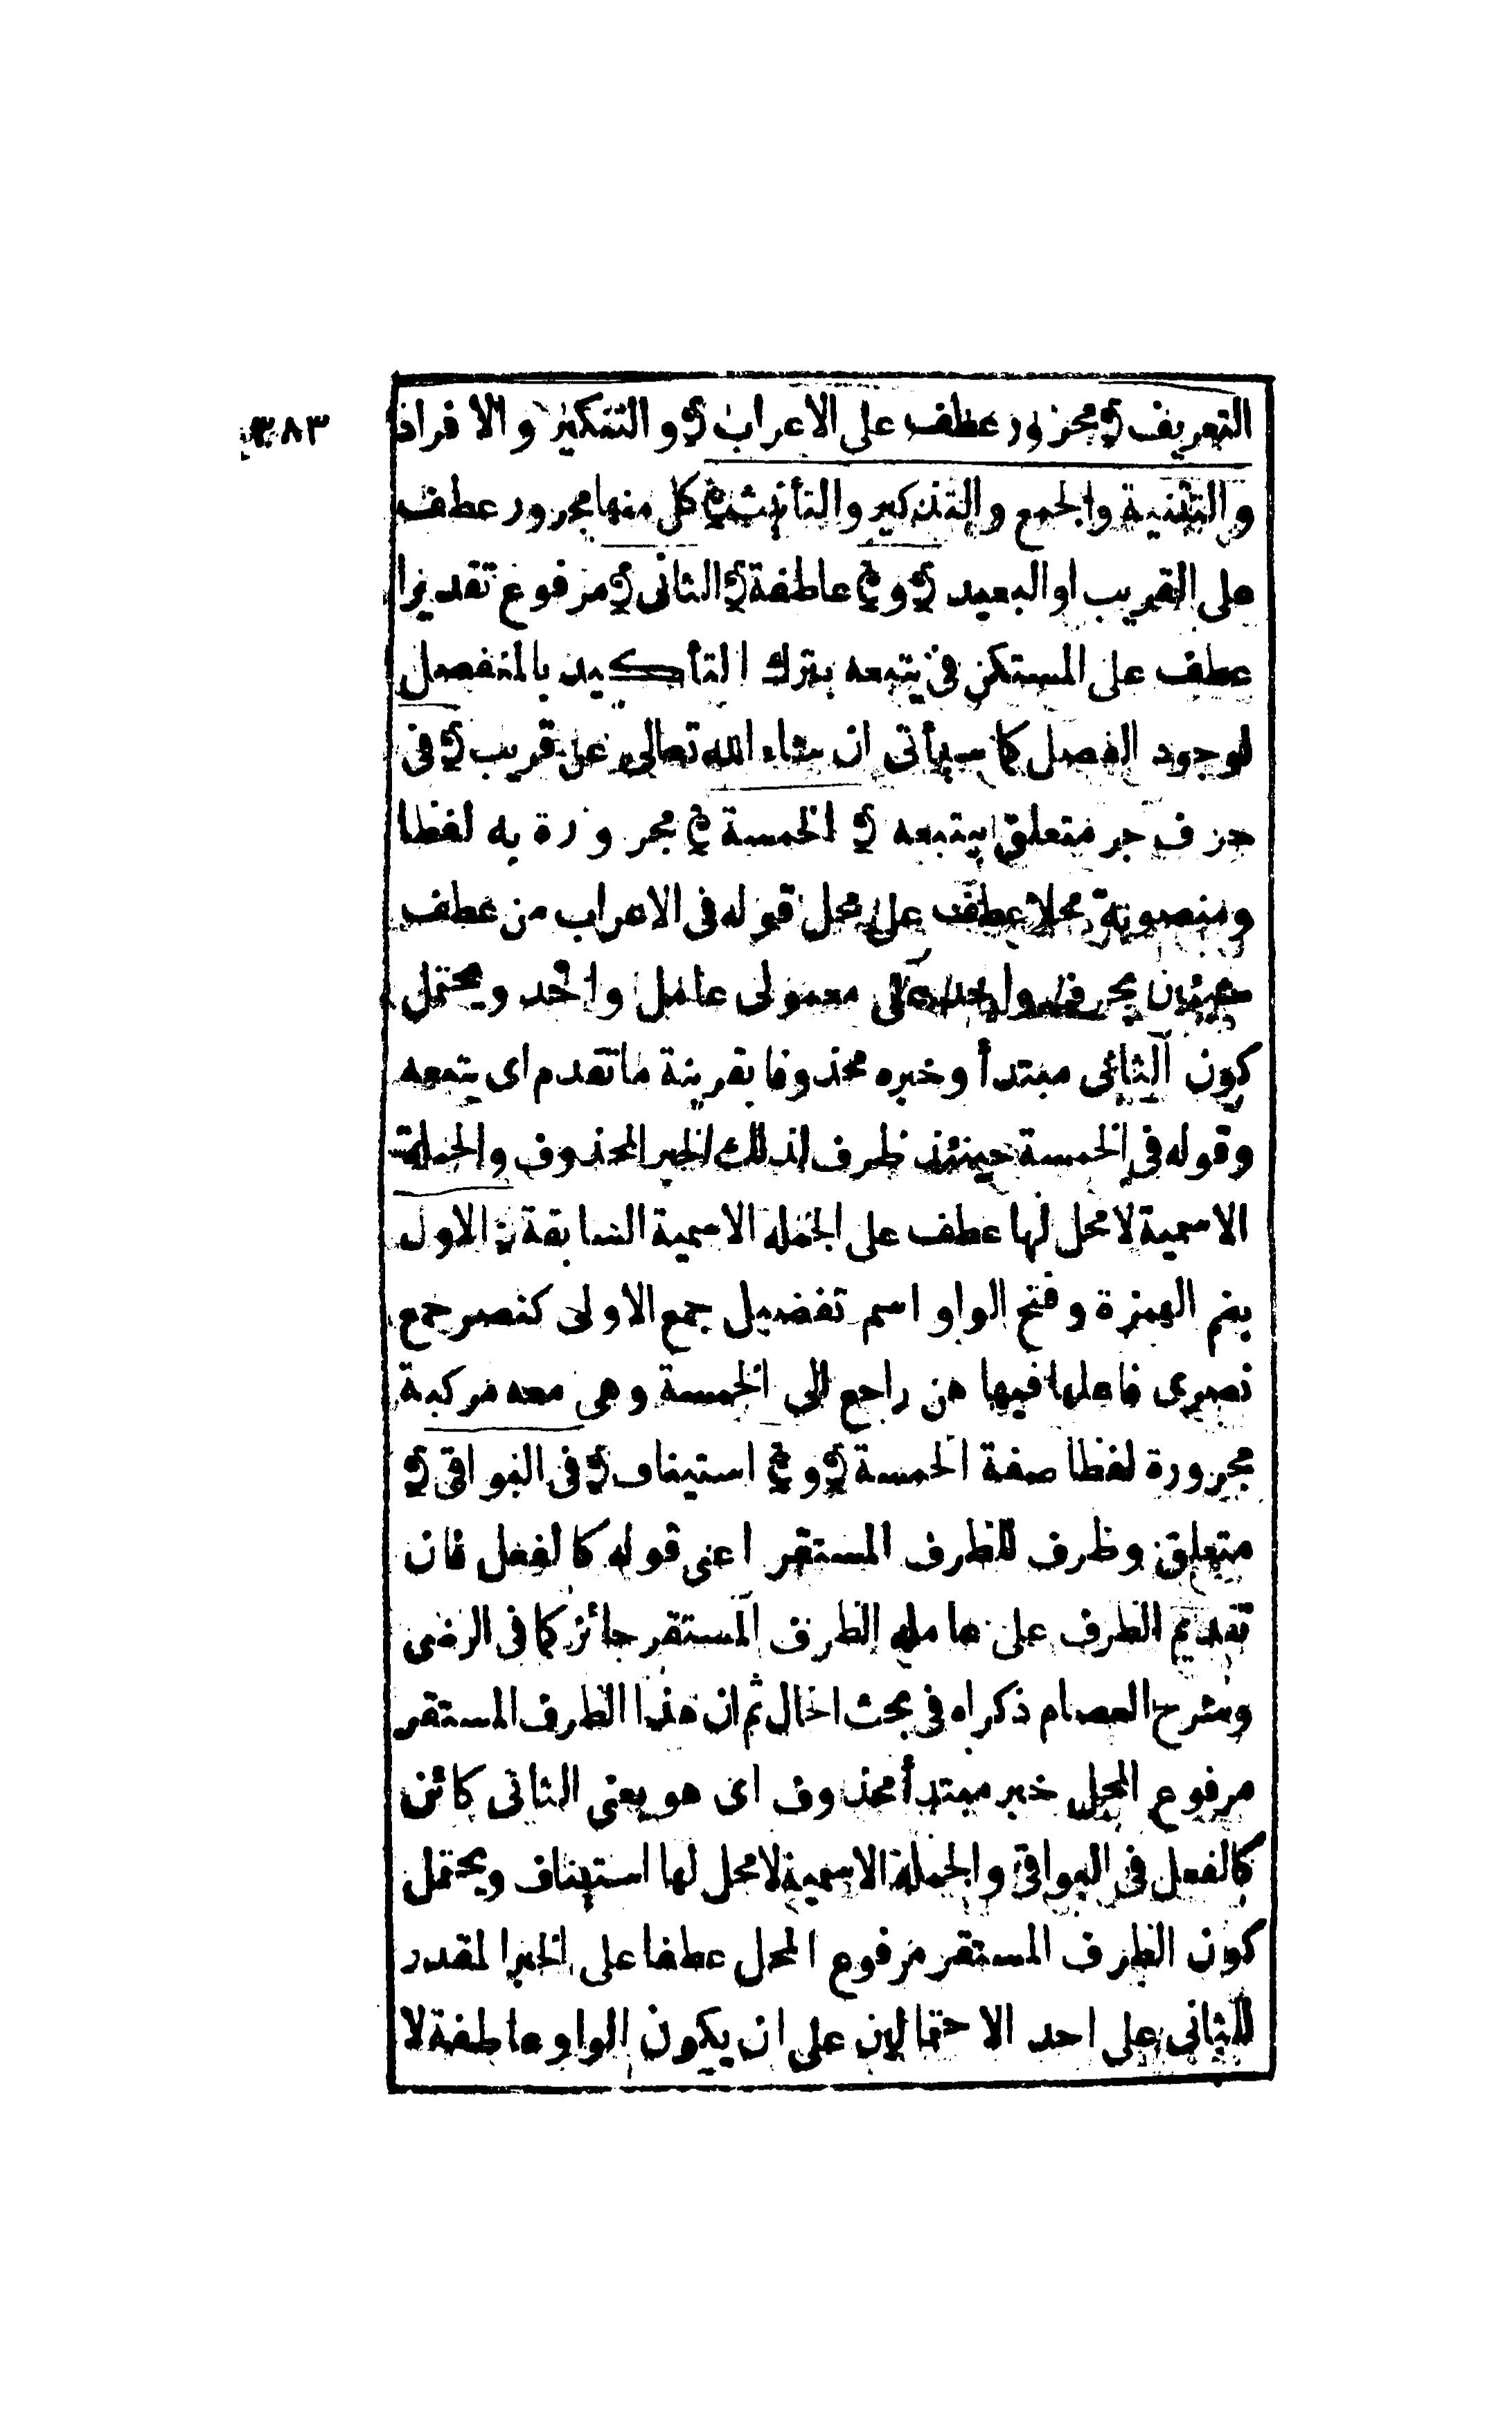 ٣٨٣
التعريف ﴾ مجرور عطف على الاعراب ﴿ و التنكير والافراد
والتثنية والجمع والتذكير والتأنيث ﴾ كل منها مجرور عطف
على القريب او البعيد ﴿ و ﴾ عاطفة ﴿ الثانى ﴾ مرفوع تقديرا
عطف على المستكن فى يتبعه بترك التأكيد بالمنفصل
لوجود الفصل كما سيأتى ان شاء الله تعالى عن قريب ﴿ فى
حرف جر متعلق بيتبعه ﴿ الخمسة ﴾ مجرورة به لفظا
ومنصوبة محلا عطف على محل قوله فى الاعراب من عطف
شيئين بحرف واحد على معمولى عامل واحد ويحتمل
كون الثانى مبتدأ وخبره محذوفا بقرينة ماتقدم اى يتبعه
وقوله فى الخمسة حينئذ ظرف لذلك الخبر المحذوف والجملة
الاسمية لامحل لها عطف على الجمله الاسمية السابقة ﴿ الاول
بضم الهمزة وفتح الواو اسم تفضيل جمع الاولى كنصر جمع
نصرى فاعلها فيها هن راجع الى الخمسة وهى معه مركبة
مجرورة لفظا صفة الخمسة ﴿ و ﴾ استيناف ﴿ فى البواقى ﴾
متعلق وظرف للظرف المستقر اعنى قوله كالفعل فان
تقديم الظرف على عامله الظرف المستقر جائز كما فى الرضى
وشرح العصام ذكراه فى بحث الحال ثم ان هذا الظرف المستقر
مرفوع المحل خبر مبتدأ محذوف اى هو يعنى الثانى كائن
كالفعل فى البواقى والجملة الاسمية لامحل لها استيناف ويحتمل
كون الظرف المستقر مرفوع المحل عطفا على الخبر المقدر
للثانى على احد الاحتمالين على ان يكون الواو عاطفة لا